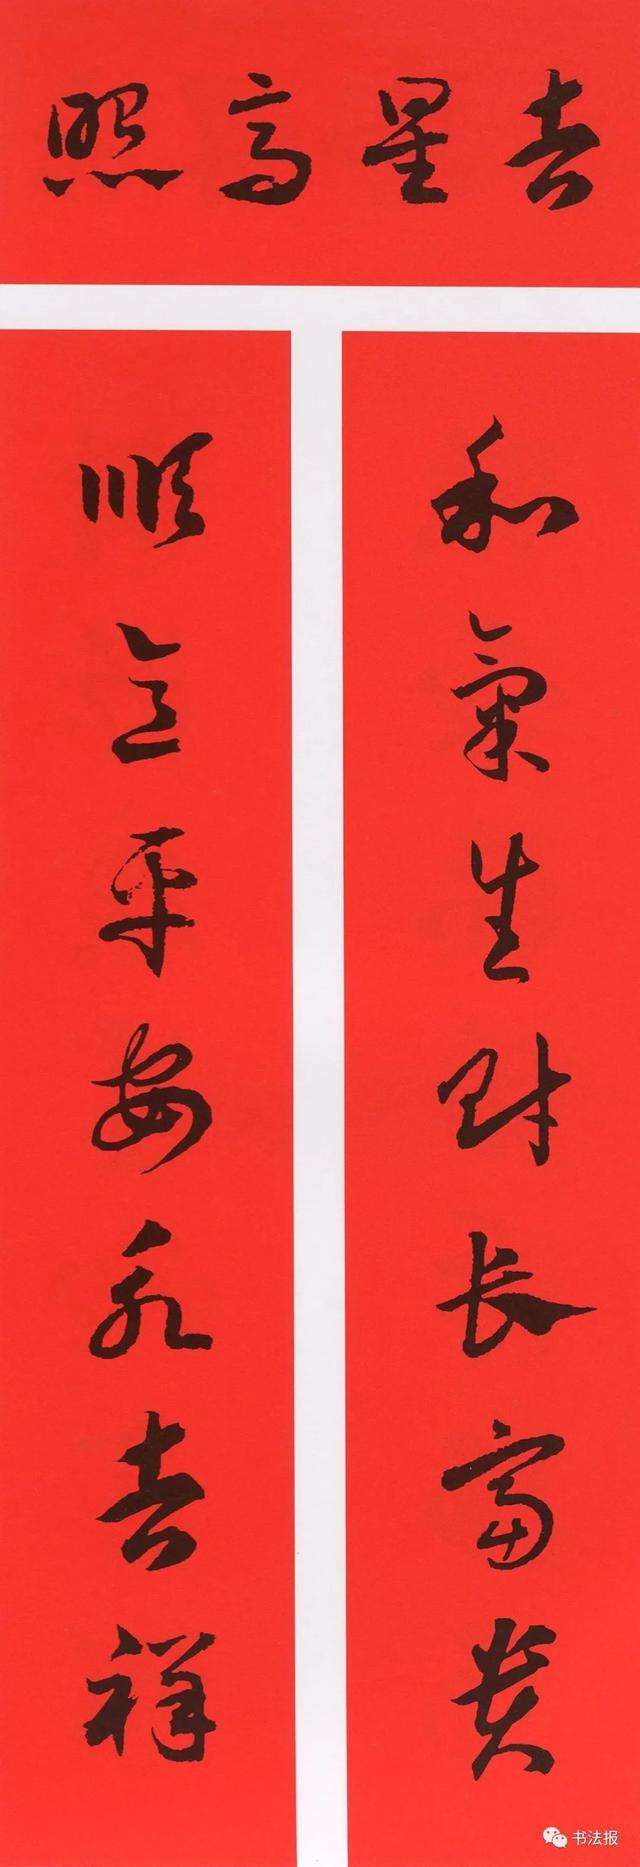 吉星高照
和氣生财长富贵
顺意平安永吉祥
书法报